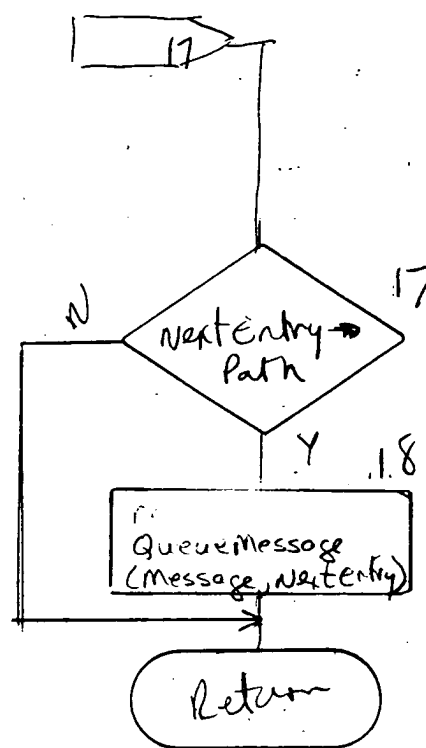 17
17
N
NextEntry→
Path
Y
18
QueueMessage
(Message, NextEntry)
Return